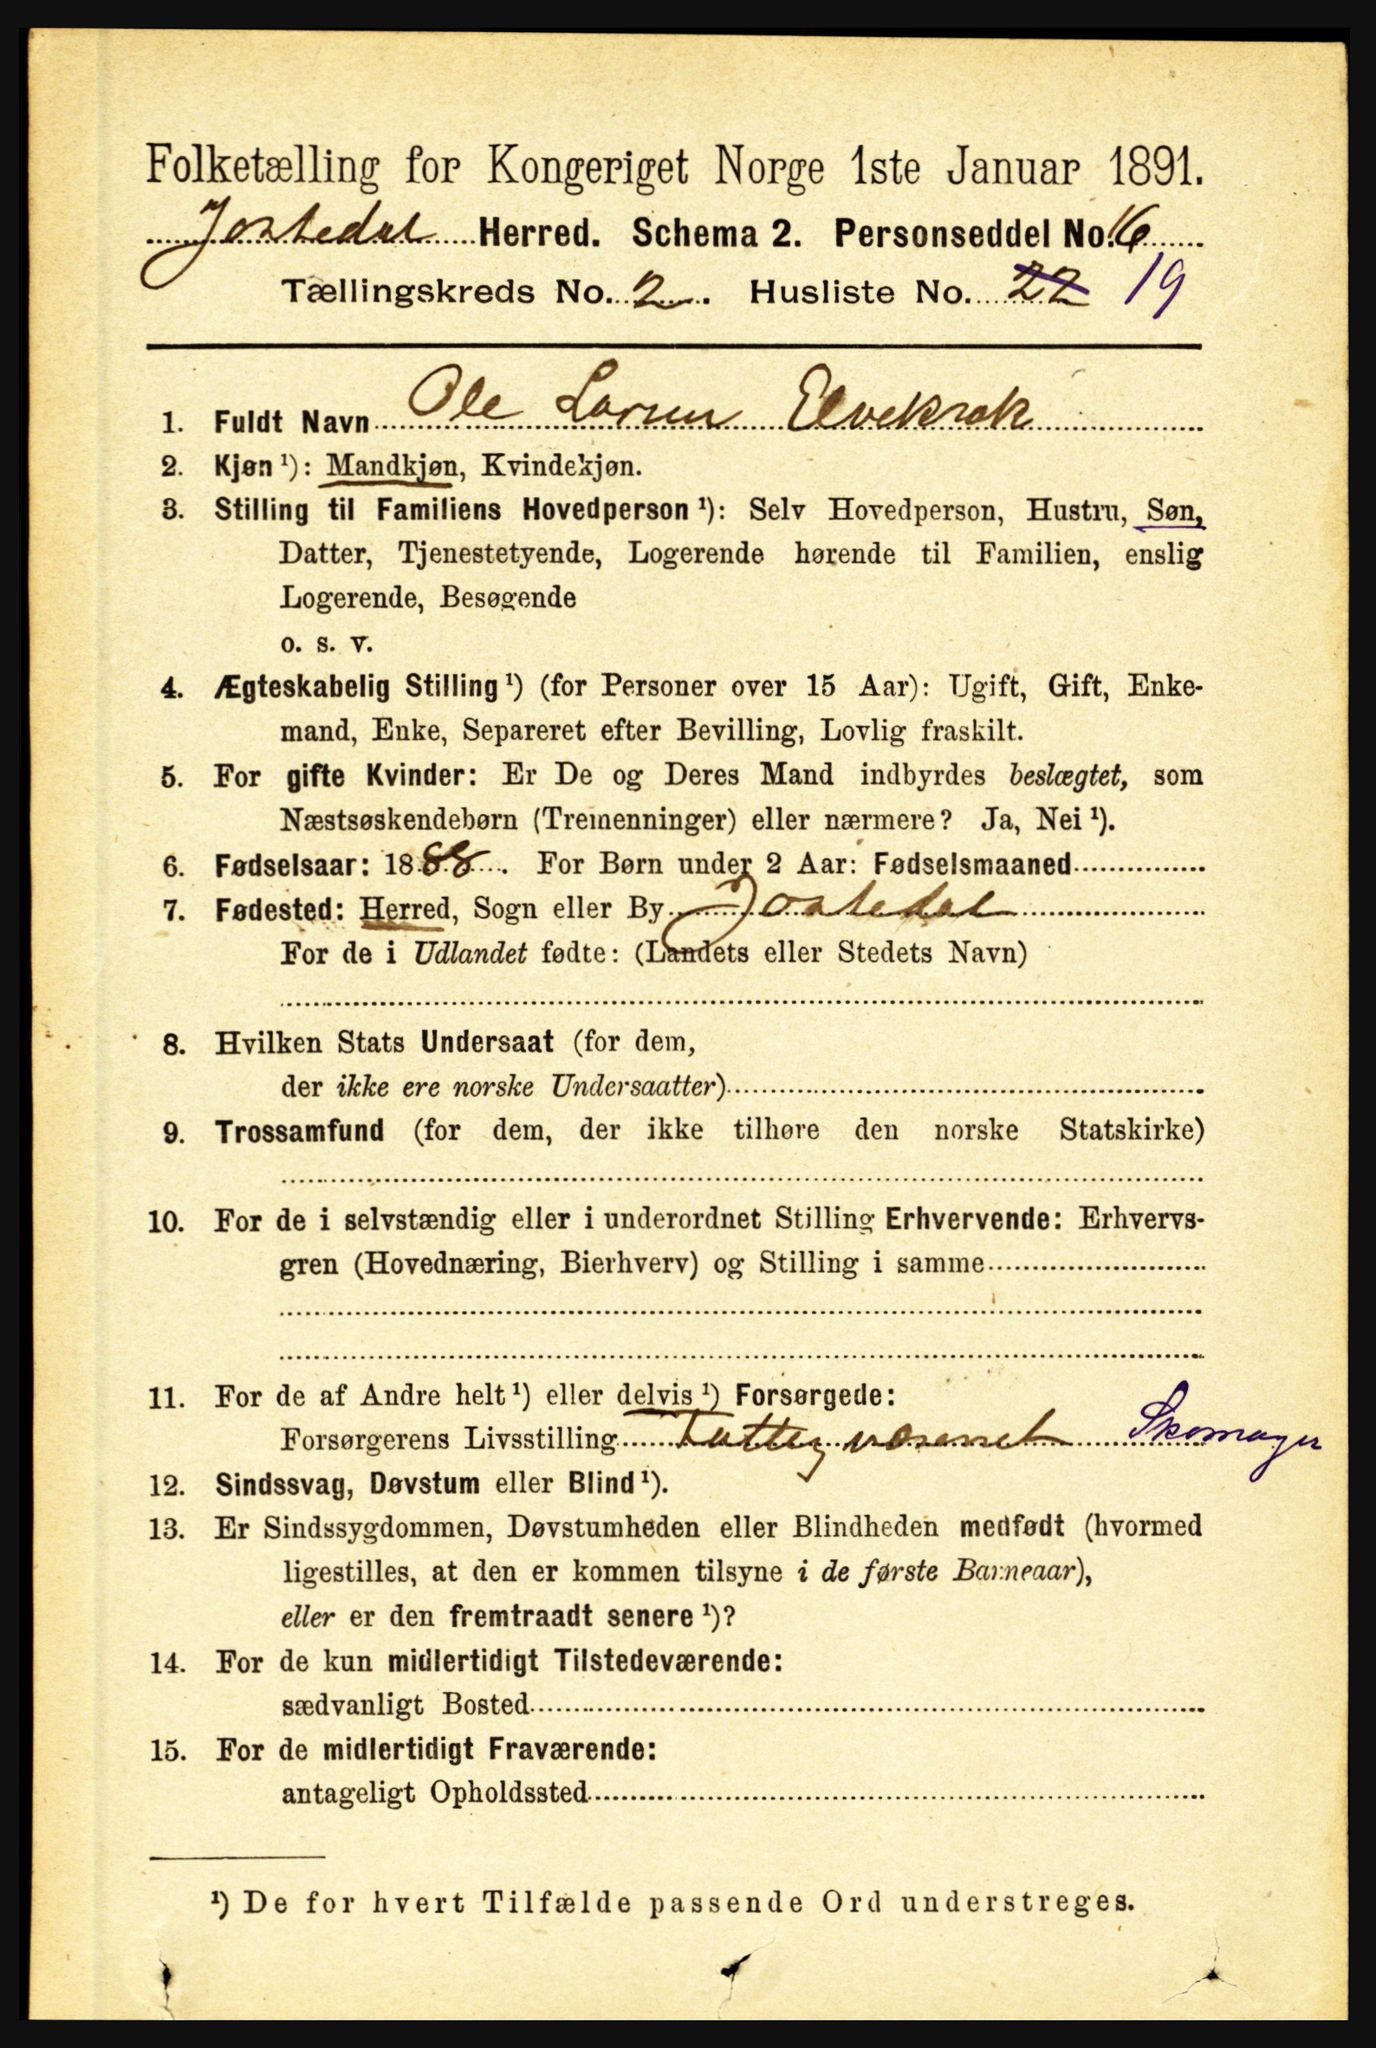 Folketælling for Kongeriget Norge 1ste Januar 1891.
Jostedal Herred. Schema 2. Personseddel No. 16
Tællingskreds No. 2. Husliste No. 22 19
1. Fuldt Navn Ole Larsen Elvekrok
2. Kjøn ¹): Mandkjøn, Kvindekjøn.
3. Stilling til Familiens Hovedperson ¹): Selv Hovedperson, Hustru, Søn,
Datter, Tjenestetyende, Logerende hørende til Familien, enslig
Logerende, Besøgende
o. s. v.
4. Ægteskabelig Stilling ¹) (for Personer over 15 Aar): Ugift, Gift, Enke-
mand, Enke, Separeret efter Bevilling, Lovlig fraskilt.
5. For gifte Kvinder: Er De og Deres Mand indbyrdes beslægtet, som
Næstsøskendebørn (Tremenninger) eller nærmere? Ja, Nei ¹).
6. Fødselsaar: 1888. For Børn under 2 Aar: Fødselsmaaned
7. Fødested: Herred, Sogn eller By Jostedal
For de i Udlandet fødte: (Landets eller Stedets Navn)
8. Hvilken Stats Undersaat (for dem,
der ikke ere norske Undersaatter)
9. Trossamfund (for dem, der ikke tilhøre den norske Statskirke)
10. For de i selvstændig eller i underordnet Stilling Erhvervende: Erhvervs-
gren (Hovednæring, Bierhverv) og Stilling i samme
11. For de af Andre helt ¹) eller delvis ¹) Forsørgede:
Forsørgerens Livsstilling Fattigvæsenet Skomager
12. Sindssvag, Døvstum eller Blind ¹).
13. Er Sindssygdommen, Døvstumheden eller Blindheden medfødt (hvormed
ligestilles, at den er kommen tilsyne i de første Barneaar),
eller er den fremtraadt senere ¹)?
14. For de kun midlertidigt Tilstedeværende:
sædvanligt Bosted
15. For de midlertidigt Fraværende:
antageligt Opholdssted
¹) De for hvert Tilfælde passende Ord understreges.